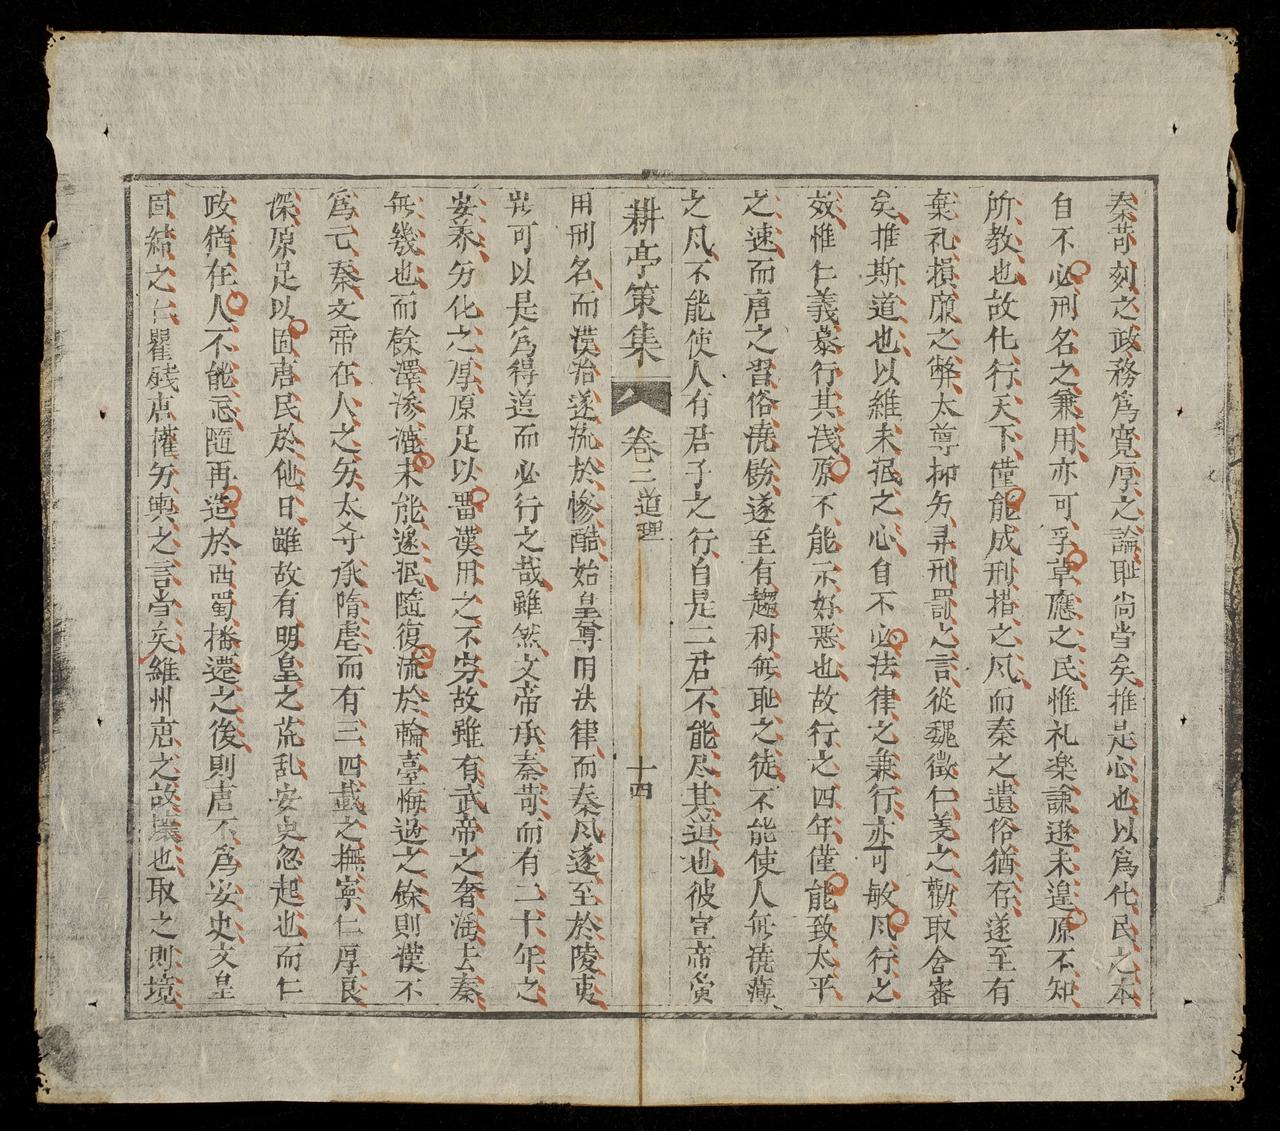 秦苛刻之政務爲寛厚之論耻尚當矣推是心也以爲化民之本
自不必刑名之兼用亦可孚草應之民惟礼楽謙遜未遑原不知
所教也故化行天下僅能成刑措之凨而秦之遺俗猶存遂至有
棄礼損廉之弊太尊抑夯尋刑罰之言從魏徵仁義之勸取舍審
矣推斯道也以維未泯之心自不必法律之兼行亦可敏凨行之
效惟仁義慕行其浅原不能示好悪也故行之四年僅能致太平
之速而唐之習俗澆勌遂至有趨利無耻之徒不能使人無澆薄
之凨不能使人有君子之行自是二君不能尽其道也彼宣帝賞
耕亭策集 卷三 道理 十四
用刑名而漢治遂㳅於慘酷始皇尊用法律而秦凨遂至於陵夷
豈可以是爲得道而必行之哉雖然文帝承秦苛而有二十年之
安养夯化之厚原足以畱漢用之不穷故雖有武帝之奢滛去秦
無幾也而餘澤渗漉未能遽泯隨復流於輪臺悔過之餘則漢不
爲亡秦文帝在人之夯太守承隋虐而有三四載之撫寧仁厚良
深原足以固唐民於他日雖故有明皇之荒乱安史忽起也而仁
政猶在人不能忘隨再造於西蜀播遷之後則唐不爲安史文皇
固結之仁瞿戔唐權夯輿之言當矣維州唐之故壤也取之則境